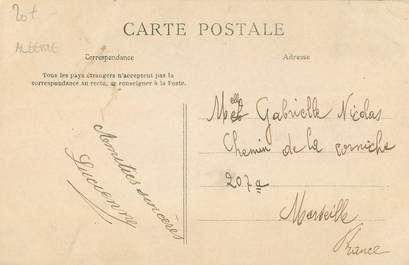 20+
ALGERIE
CARTE POSTALE
Correspondance
Adresse
Tous les pays étrangers n'acceptent pas la
correspondance au recto, se renseigner à la Poste.
Amitiés sincères
Lucienne
Melle Gabrielle Nicolas
Chemin de la corniche
207a
Marseille
France